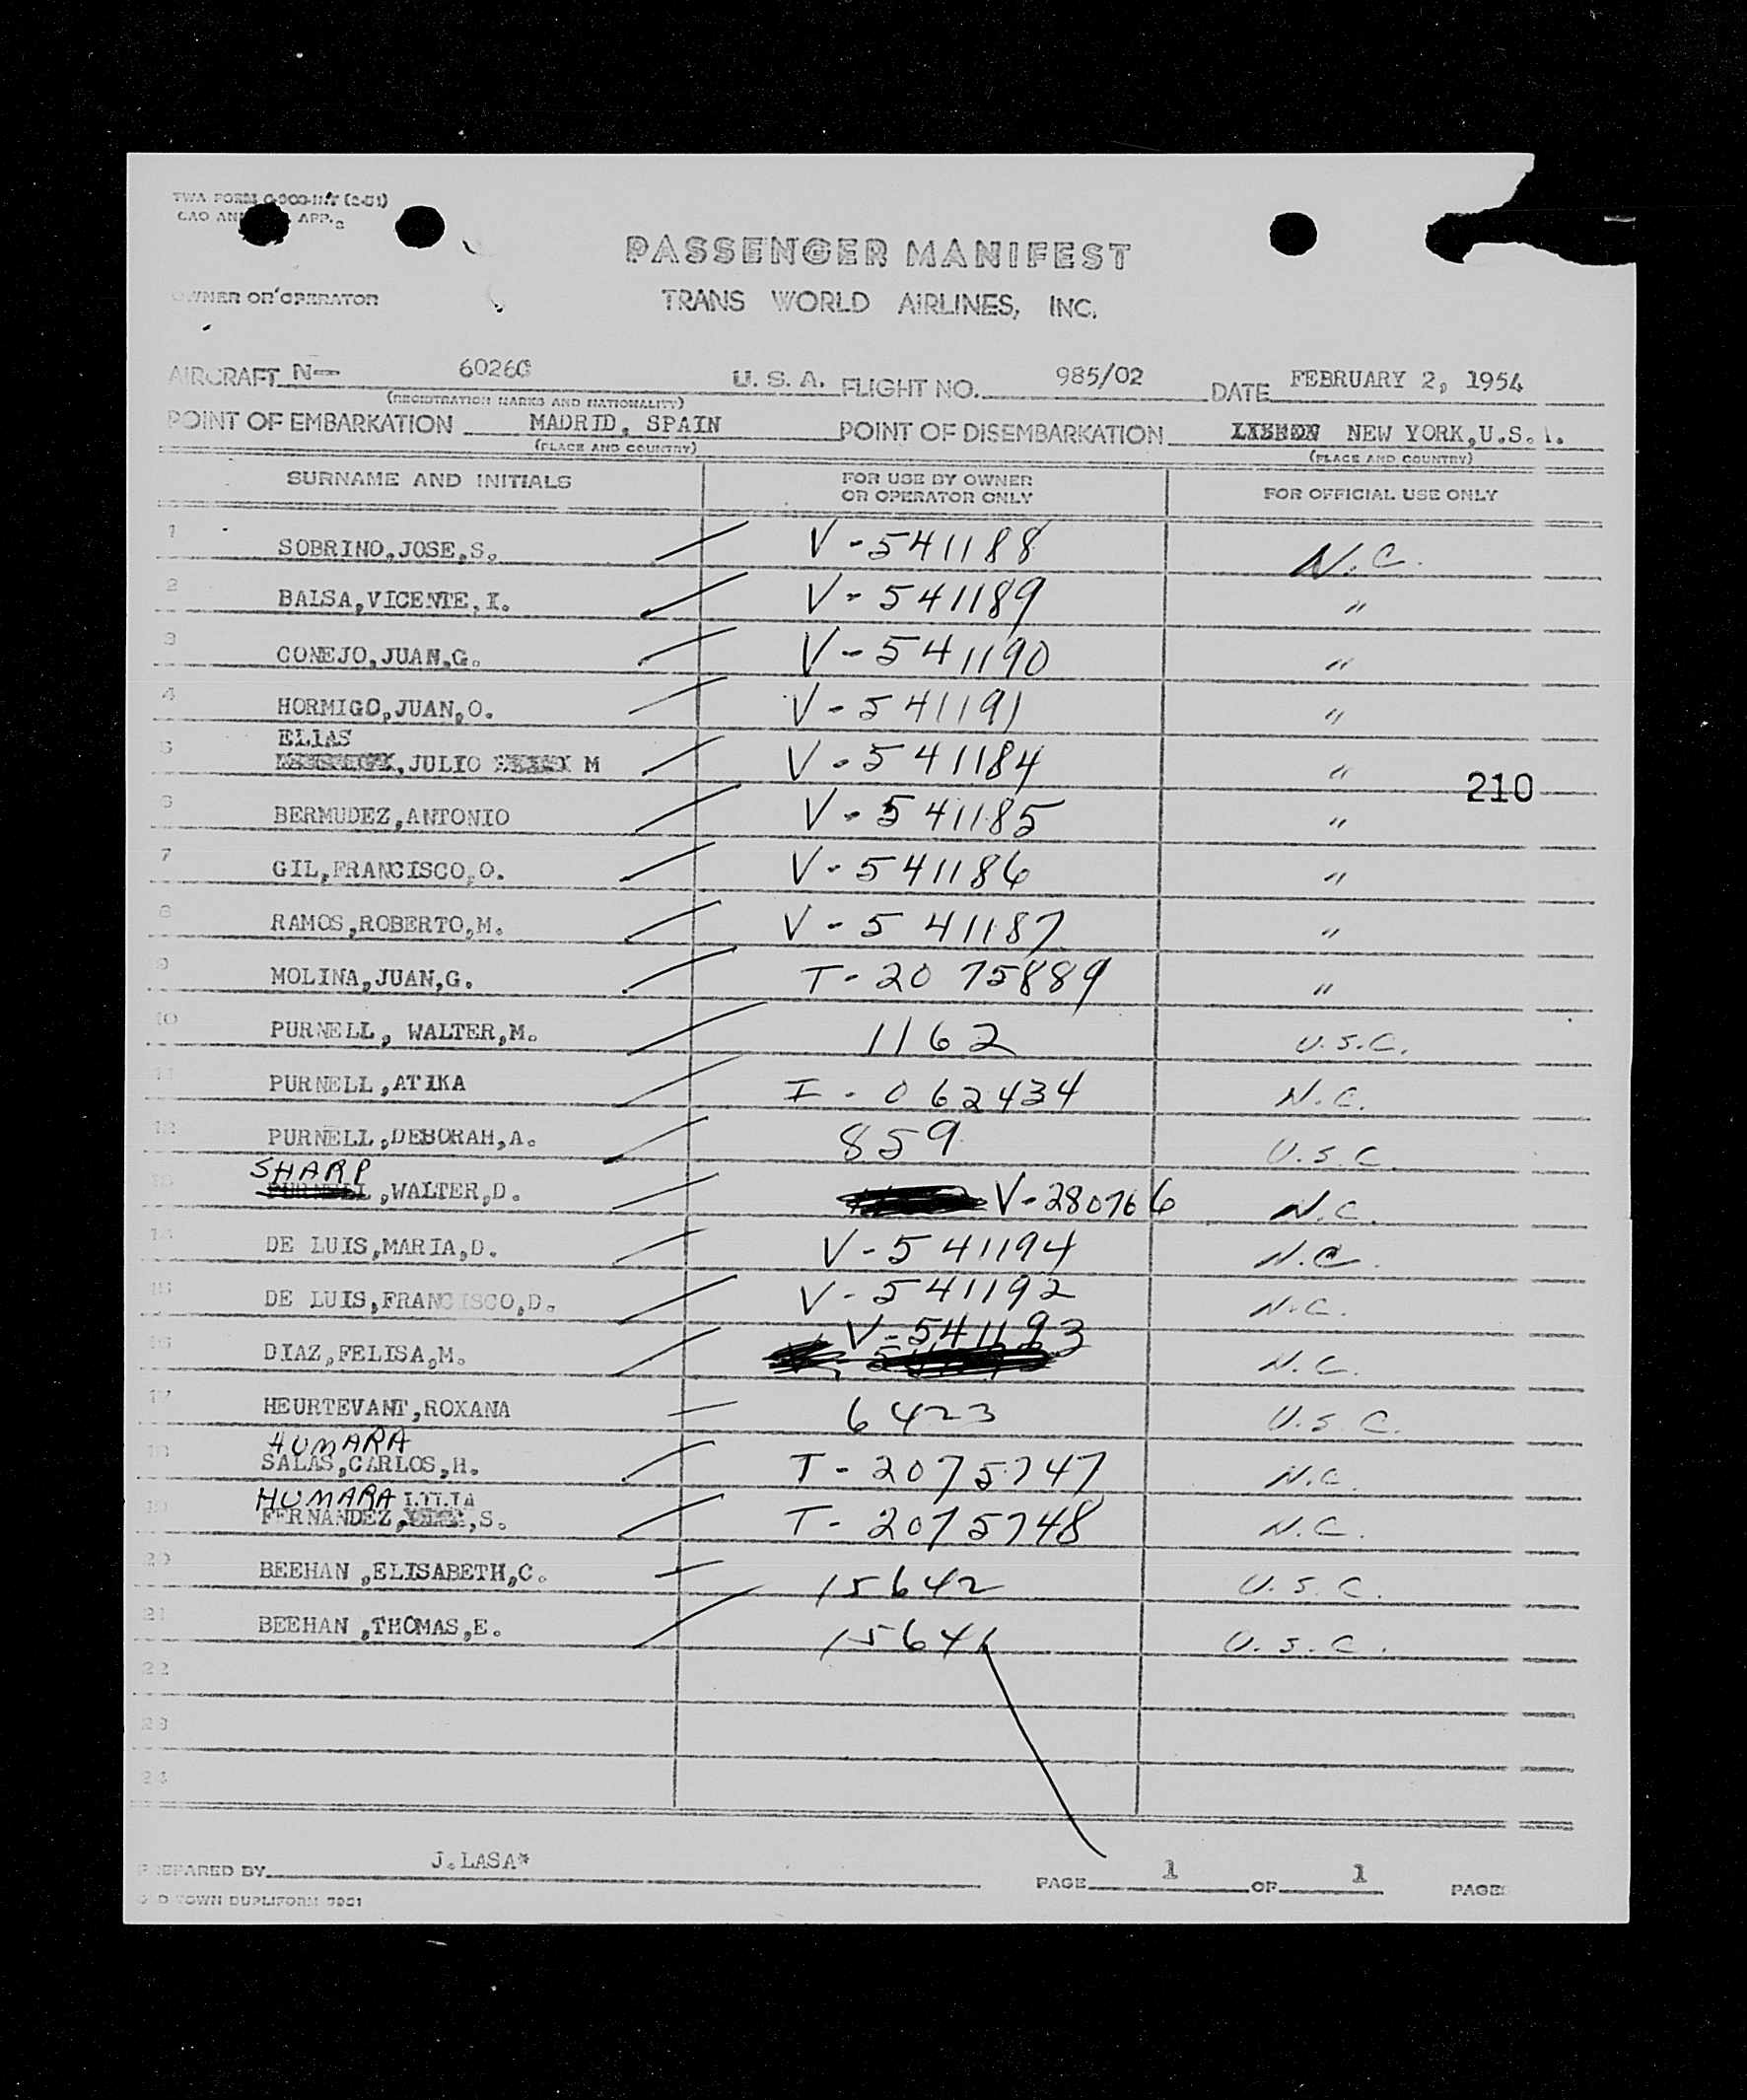 TWA FORM
CAO APP.
PASSENGER MANIFEST
OWNER OR OPERATOR TRANS WORLD AIRLINES, INC.
AIRCRAFT N— 6026C U. S. A. FLIGHT NO. 985/02 DATE FEBRUARY 2, 1954
(REGISTRATION MARKS AND NATIONALITY)
POINT OF EMBARKATION MADRID, SPAIN POINT OF DISEMBARKATION LISBON NEW YORK,U.S.A.
(PLACE AND COUNTRY) (PLACE AND COUNTRY)
SURNAME AND INITIALS FOR USE BY OWNER OR OPERATOR ONLY FOR OFFICIAL USE ONLY
1 SOBRINO,JOSE,S. V-541188 N.C.
2 BALSA,VICENTE,I. V-541189 "
3 CONEJO,JUAN,G. V-541190 "
4 HORMIGO,JUAN,O. V-541191 "
ELIAS
5 ,JULIO M V-541184 "
210
6 BERMUDEZ,ANTONIO V-541185 "
7 GIL,FRANCISCO,O. V-541186 "
8 RAMOS,ROBERTO,M. V-541187 "
9 MOLINA,JUAN,G. T-2075889 "
10 PURNELL, WALTER,M. 1162 U.S.C.
11 PURNELL,ATIKA I-062434 N.C.
12 PURNELL,DEBORAH,A. 859 U.S.C.
SHARP
13 PURNELL,WALTER,D. V-280766 N.C.
14 DE LUIS,MARIA,D. V-541194 N.C.
15 DE LUIS,FRANCISCO,D. V-541192 N.C.
V-541193
16 DIAZ,FELISA,M. N.C.
17 HEURTEVANT,ROXANA 6423 U.S.C.
HUMARA
18 SALAS,CARLOS,H. T-2075747 N.C.
HUMARA LILIA
19 FERNANDEZ, ,S. T-2075748 N.C.
20 BEEHAN ,ELISABETH,C. 15642 U.S.C.
21 BEEHAN ,THOMAS,E. 15641 U.S.C.
22
23
24
PREPARED BY J.LASA* PAGE 1 OF 1 PAGES
DUPLIFORM